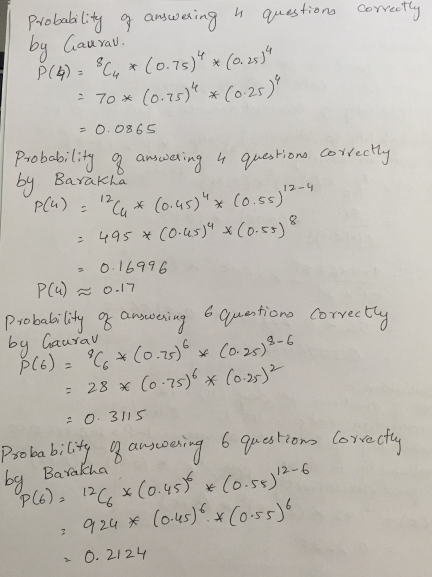 Probability of answering 4 questions correctly
by Gaurav.
P(4) = ⁸C₄ * (0.75)⁴ * (0.25)⁴
= 70 * (0.75)⁴ * (0.25)⁴
= 0.0865
Probability of answering 4 questions correctly
by Barakha
P(4) = ¹²C₄ * (0.45)⁴ * (0.55)¹²⁻⁴
= 495 * (0.45)⁴ * (0.55)⁸
= 0.16996
P(4) ≈ 0.17
Probability of answering 6 questions correctly
by Gaurav
P(6) = ⁸C₆ * (0.75)⁶ * (0.25)⁸⁻⁶
= 28 * (0.75)⁶ * (0.25)²
= 0.3115
Probability of answering 6 questions correctly
by Barakha
P(6) = ¹²C₆ * (0.45)⁶ * (0.55)¹²⁻⁶
= 924 * (0.45)⁶ * (0.55)⁶
= 0.2124